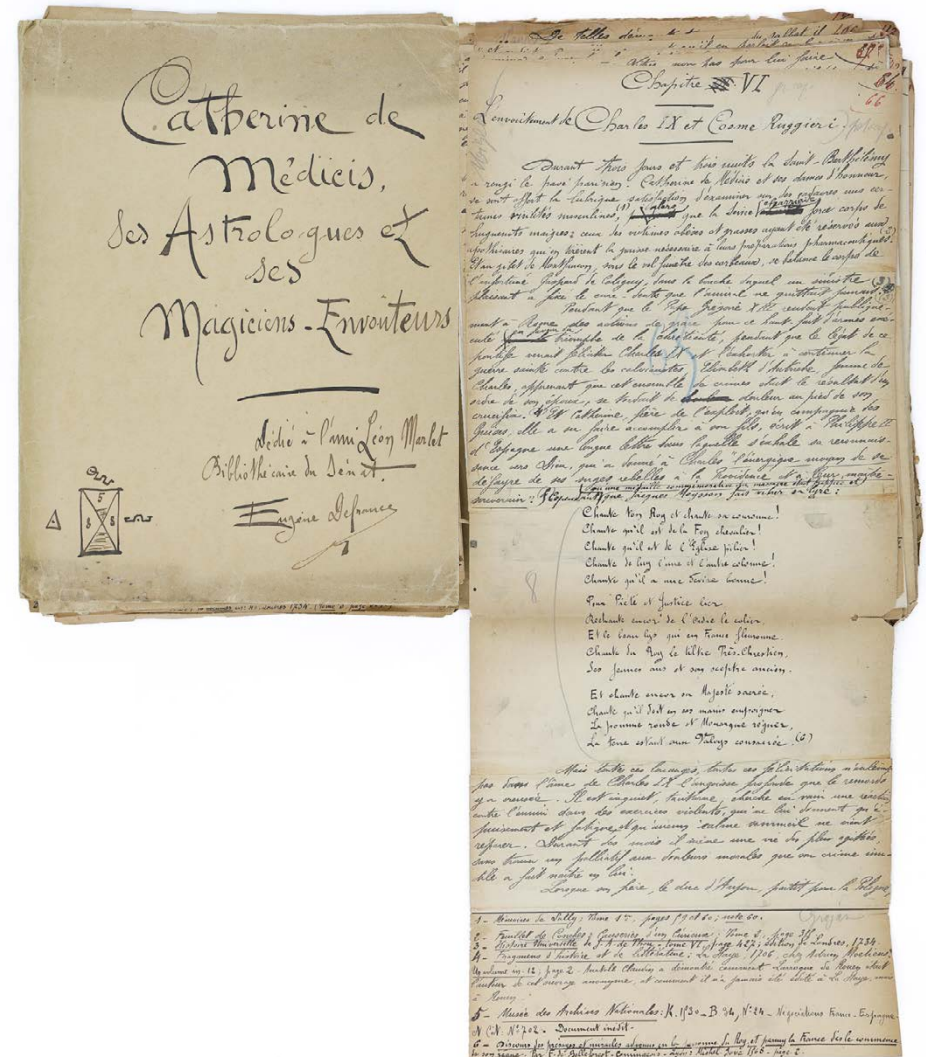 Catherine de
Médicis,
ses Astrologues et
ses
Magiciens-Envoûteurs
Dédié à l'ami Léon Marlet
Bibliothécaire du Sénat.
Eugène Defrance
5
8 8
De telles
Chapitre VI
L'envoûtement de Charles IX et Cosme Ruggieri
Durant trois jours et trois nuits la Saint-Barthélemy
a rougi le pavé parisien. Catherine de Médicis et ses dames d'honneur,
se sont offert la lubrique satisfaction d'examiner sur les cadavres nus cer-
taines virilités masculines, (1) que la Seine force corps de
huguenots maigres; ceux des victimes obèses et grasses ayant été réservés aux
apothicaires qui en tirèrent la graisse nécessaire à leurs préparations pharmaceutiques.
Et au gibet de Montfaucon, sous le vol funèbre des corbeaux, se balance le corps de
l'infortuné Gaspard de Coligny, dans la bouche duquel un sinistre
plaisant a placé le cure-dents que l'amiral ne quittait jamais.
Pendant que le Pape Grégoire XIII rendait publique-
ment à Rome des actions de grâce pour ce haut fait d'armes
triomphe de la chrétienté, pendant que le légat de ce
pontife venait féliciter Charles IX et l'exhorter à continuer la
guerre sainte contre les calvinistes, Elisabeth d'Autriche, femme de
Charles, apprenant que cet ensemble de crimes était le résultat d'un
ordre de son époux, se tordait de douleur au pied de son
crucifix. Et Catherine, fière de l'exploit, qu'en compagnie des
Guises, elle a su faire accomplir à son fils, écrit à Philippe II
d'Espagne une longue lettre dans laquelle s'exhale sa reconnais-
sance vers Dieu, qui a donné à Charles "l'énergique moyen de se
défayre de ses sujets rebelles à la Providence et à leur
Cependant que Jacques Moysson fait vibrer sa lyre:
Chante ton Roy et chante sa couronne!
Chante qu'il est de la Foy chevalier!
Chante qu'il est de l'Eglise pilier!
Chante de luy l'une et l'autre colonne!
Chante qu'il a une Seine bonne!
Pour Piété et Justice lier
Rechante encor' de l'Ordre le colier,
Et le beau lys qui en France fleuronne.
Chante du Roy le tiltre Très-Chrestien,
Ses jeunes ans et son sceptre ancien.
Et chante encor sa Majesté sacrée,
Chante qu'il doit en ses mains empoigner
La pomme ronde et Monarque régner,
La terre estant aux Valoys consacrée. (6)
Mais toutes ces louanges, toutes ces félicitations n'enlèvent
pas dans l'âme de Charles IX l'angoisse profonde que le remords
y a Il est inquiet, taciturne, cherche en vain une réaction
contre l'ennui dans des exercices violents, qui ne lui donnent qu'é-
puisement et fatigue, et qu'aucun calme sommeil ne vient
reposer. Durant des mois il mène une vie des plus agitées,
sans trouver un palliatif aux douleurs morales que son crime
a fait naître en lui.
Lorsque son frère, le duc d'Anjou, partit pour la Pologne,
1 - Mémoires de Sully; Tome 1er, pages 59 et 60; note 60.
2 - Feuillet de Conches; Causeries d'un Curieux; Tome 2, page
3 - Histoire Universelle de J.A. de Thou, Tome VI, page 427; édition de Londres, 1734.
4 - Fragments d'histoire et de littérature; La Haye, 1706, chez Adrien Moetjens,
Un volume in-12, page 2. Anatole Claudin a démontré comment Larroque de Rouen était
l'auteur de cet ouvrage anonyme, et comment il n'a jamais été édité à La Haye, mais
à Rouen.
5 - Musée des Archives Nationales: K. 1530 - B 34, N° 24 - Négociations France-Espagne
N° 702 - Document inédit.
6 - Discours des présages et miracles advenus en la personne du Roy et parmy la France dès le commencement
de son règne. Lyon; Michel Jove - page 2.